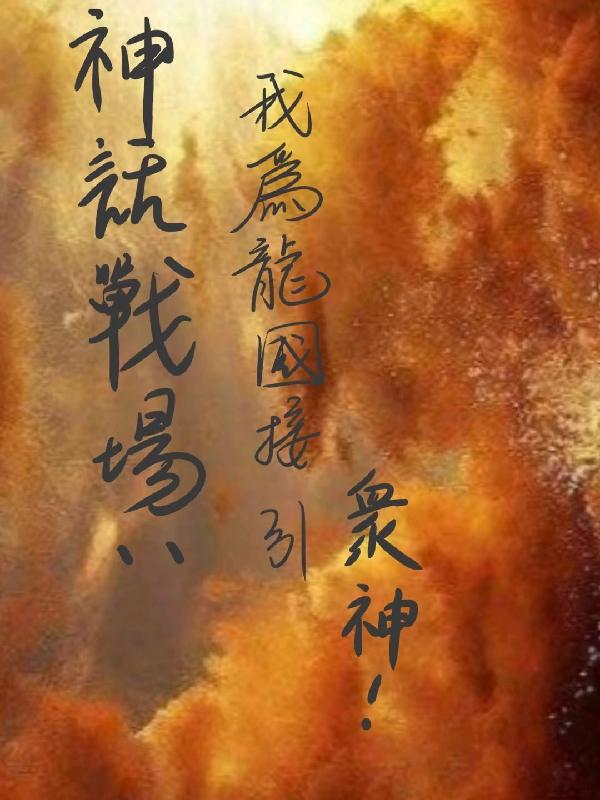 神話戰場：
我爲龍國接引
衆神！